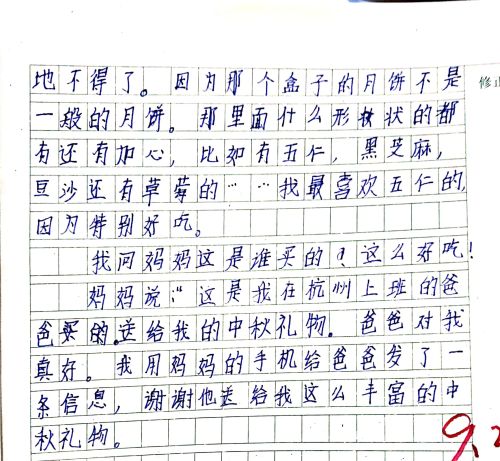 地不得了。因为那个盒子的月饼不是
修正
一般的月饼。那里面什么形状的都
有还有加心，比如有五仁，黑芝麻，
豆沙还有草莓的……我最喜欢五仁的，
因为特别好吃。
我问妈妈这是谁买的？这么好吃！
妈妈说：“这是我在杭州上班的爸
爸买的。送给我的中秋礼物。爸爸对我
真好。我用妈妈的手机给爸爸发了一
条信息，谢谢他送给我这么丰富的中
秋礼物。